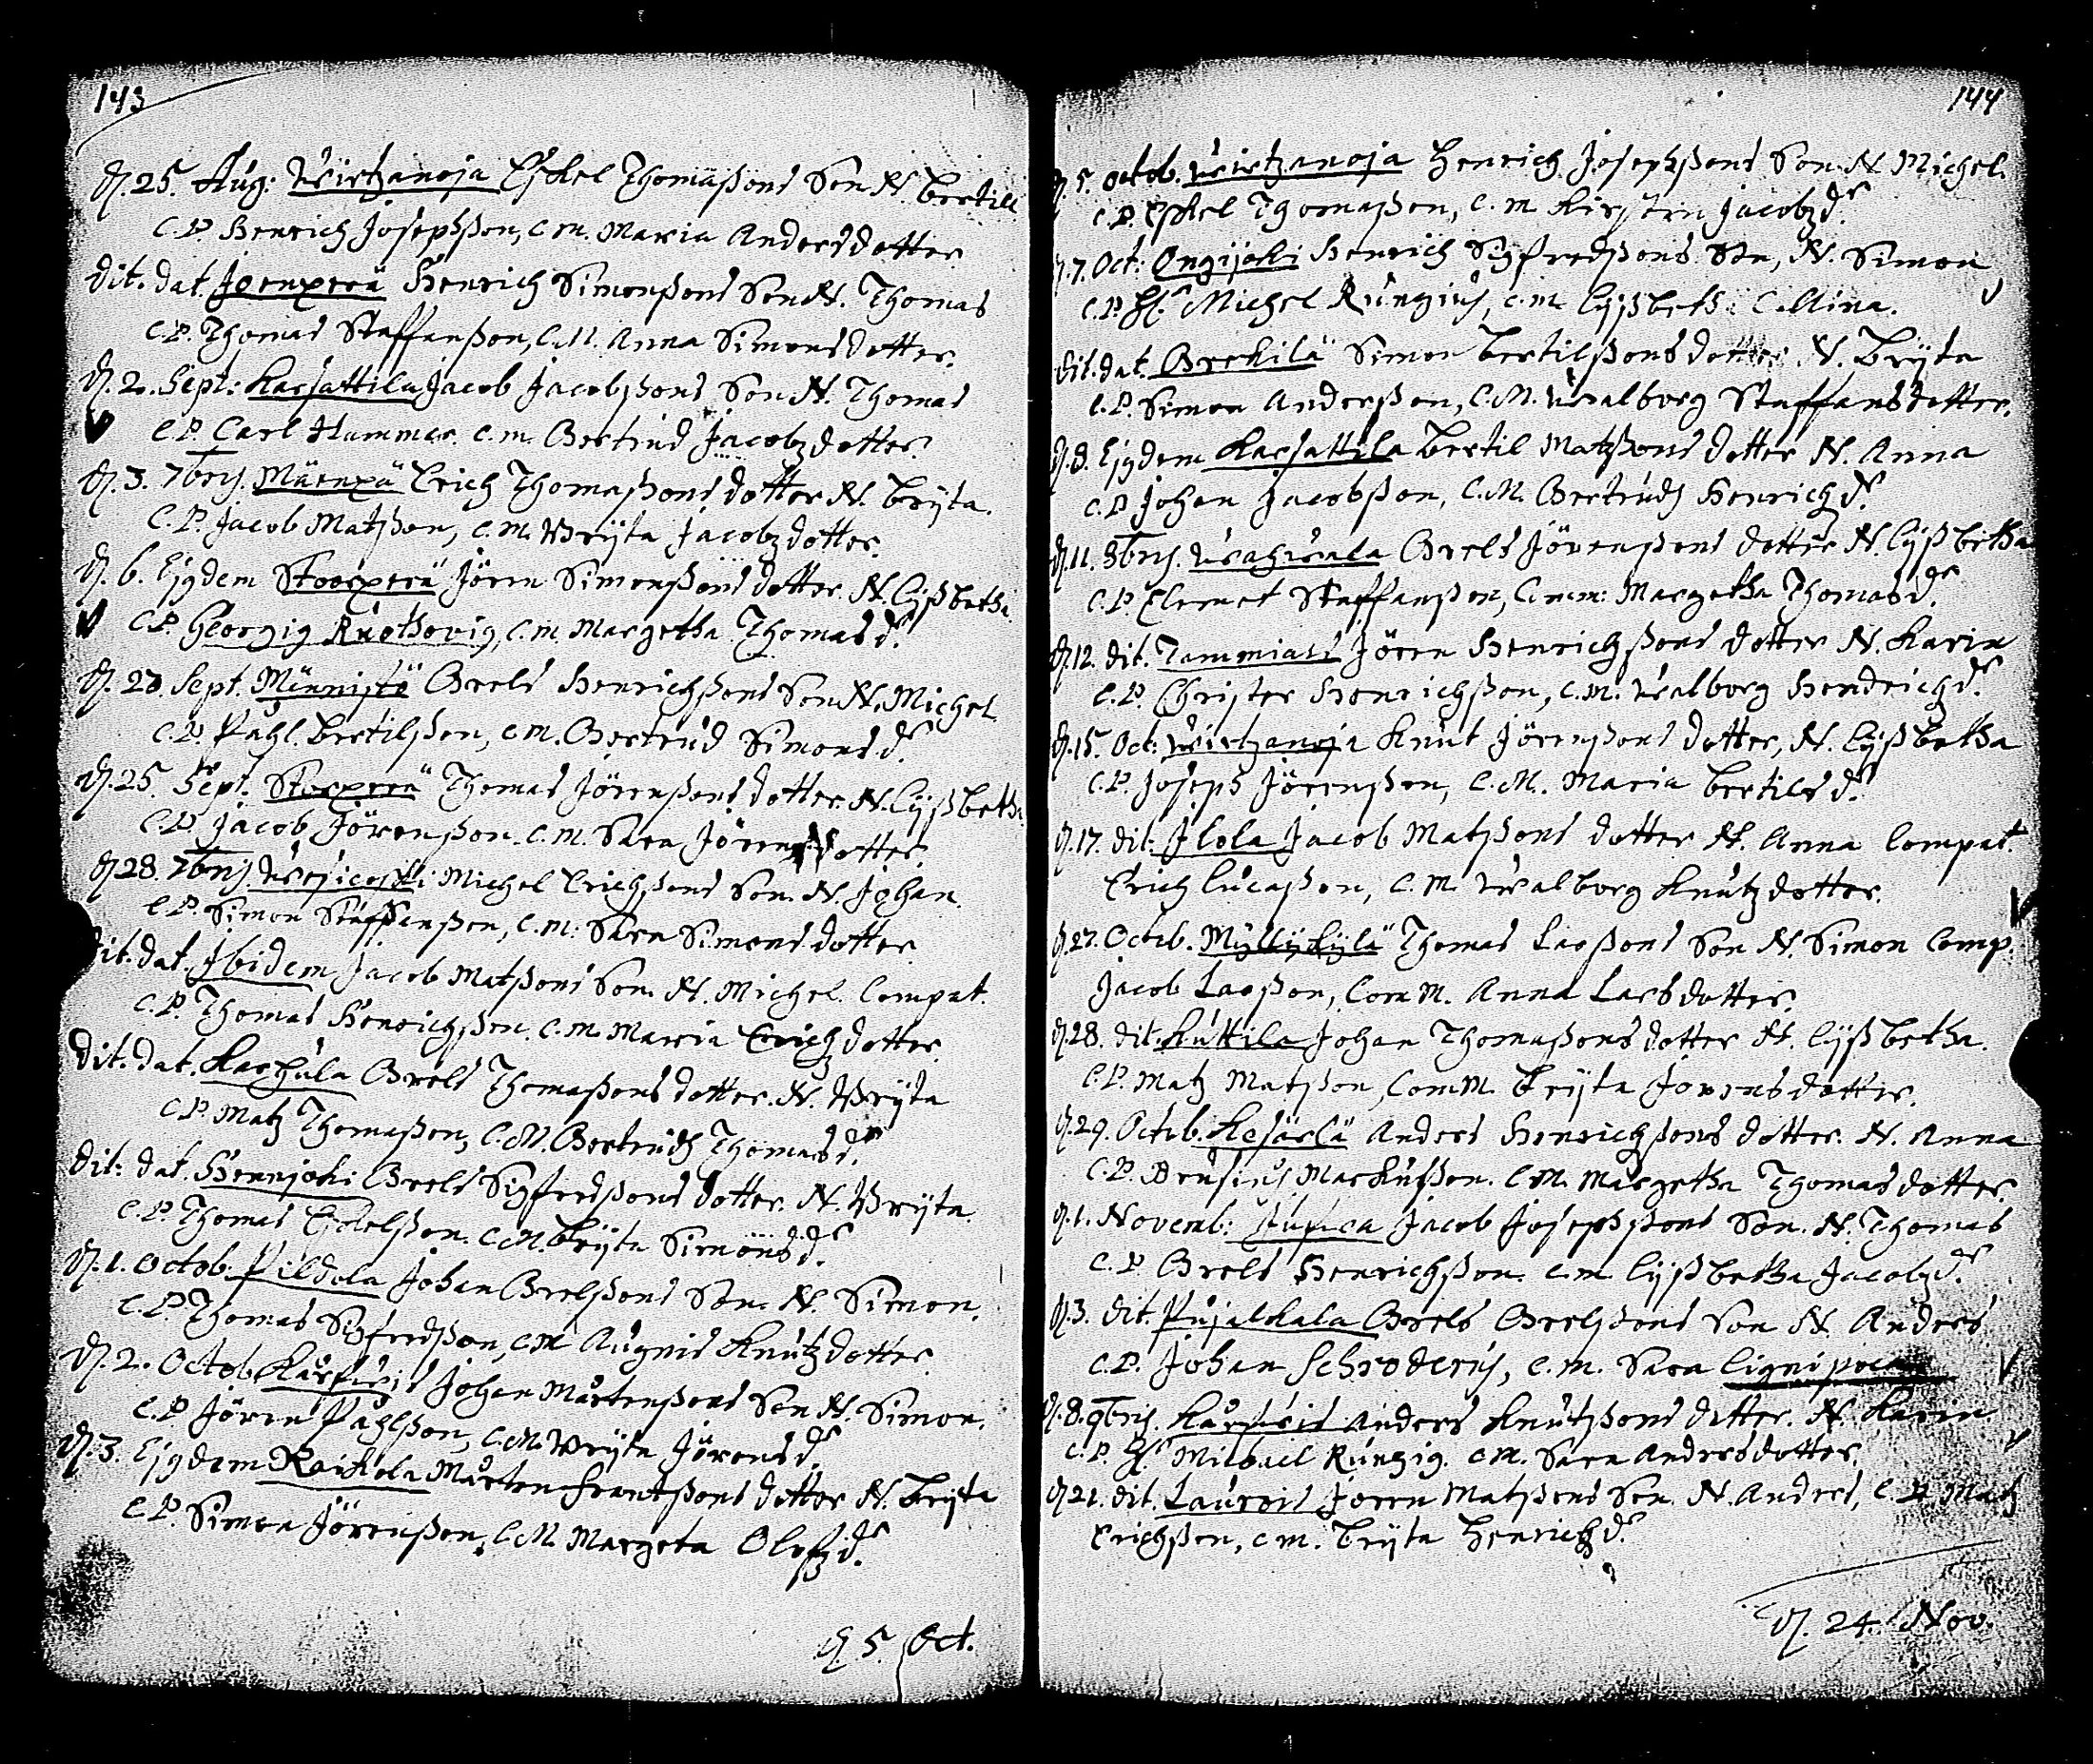 143
D. 25. Aug: Wirtzanoja Eskel Thomæssons Son N. Bertill
C.P. Henrich Josephsson, C.M. Maria Andersdotter
Dit. dat. Joenperä Henrich Simonssons Son N. Thomas
C.P. Thomas Staffansson, C.M. Anna Simonsdotter.
D. 2. Sept: Karsattila Jacob Jacobssons Son N. Thomas
C.P. Carl Hammar. C.m. Gertrud Jacobzdotter.
D. 3. 7bris. Mäenpä Erich Thomassons dotter N. Bryta.
C.P. Jacob Matsson, C.m. Bryta Jacobzdotter.
D. 6. Ejusdem Stoorperä Jören Simonssons dotter. N. Lyssbetha.
C.P. Georgig Ruthovig, C.m. Margetha Thomas dr.
D. 20. Sept. Männistö Brels Henrichssons Son N. Michel
C.P. Påhl. Bertilsson, C.M. Gertrud Simons dr.
D. 25. Sept. Storperä Thomas Jörenssons dotter N. Lyssbetha
C.P. Jacob Jörensson. C.m. Sara Jörensdotter.
D. 28. 7bris. Wesicoski Michel Erichssons Son. N. Johan.
C.P. Simon Staffansson, C.m. Sara Simonsdotter
Dit. dat. Ibidem Jacob Matssons Son. N. Michel. Compat.
C.P. Thomas Henrichsson. C.M. Maria Erichzdotter.
Dit. dat. Karhula Brels Thomassons dotter. N. Bryta
C.P. Matz Thomasson, C.M. Gertrudh Thomas dr.
Dit: dat. Hennijoki Brels Sigfredssons dotter. N. Bryta.
C.P. Thomas Eskelsson. C.M. Bryta Simons dr.
D. 1. Octob. Pildola Johan Brelssons Son. N. Simon.
C.P. Thomas Sigfredsson, C.M. Augnis Knutzdotter
D. 2. Octob Karhuis Johan Mårtenssons Son N. Simon.
C.P. Jören Påhlsson, C.M. Bryta Jörens dr.
D. 3. Ejusdem Raikola Mårten Frantssons dotter N. Bryta
C.P. Simon Jörensson, C.M. Margeta Olofz dr.
D. 5. Oct.
144
D. 5. octob. Wirtzanoja Henrich Josephssons Son N Michel.
C.P. Eskel Thomasson, C.m Kirstin Jacobz dr.
D. 7. Oct: Ongijoki Henrich Sigfredssons Son, N. Simon
C.P. Hr. Michel Rungius, C.m Lyssbeth
Dit. dat. Brekilä Simon Bertilssons dotter, N. Bryta
C.P. Simon Andersson, C.M. Walborg Staffansdotter.
D. 8. Ejusdem Karsattila Bertil Matssons dotter N. Anna
C.P. Johan Jacobsson, C.M. Gertrudh Henrichz dr.
D. 11. 8bris. Wahwala Brels Jörenssons dotter N. Lyssbetha
C.P. Clemet Staffansson, Comm: Margetha Thomas dr.
D. 12. Dit. Tammiais Jören Henrichssons dotter N. Karin
C.P. Christer Henrichsson, C.M. Walborg Hendrich dr.
D. 15. Oct: Wirtzanoja Knut Jörenssons dotter, N. Lyssbetha
C.P. Joseph Jörensson, C.M. Maria Bertils dr.
D. 17. dit. Ilola Jacob Matssons dotter N. Anna Compat.
Erich Lucasson, C.M. Walborg Knutzdotter.
D. 27. Octob. Myllykylä Thomas Larssons Son N. Simon Comp.
Jacob Larsson, ComM. Anna Larsdotter
D. 28. Dit. Kuttila Johan Thomassons dotter N. Lyssbetha.
C.P. Matz Matsson, ComM. Bryta Jörensdotter.
D. 29. Octob. Kesärlä Anders Henrichssons dotter. N. Anna
C.P. Brusius Markusson. C.M. Margetha Thomasdotter
D. 1. Novemb: Jacob Josephssons Son. N. Thomas
C.P. Brels Henrichsson. C.m. Lyssbetha Jacobz dr.
D. 3. Dit. Pujalkala Brels Brelssons Son N. Anders
C.P. Johan Schroderus, C.m. Sara
D. 8. 9bris. Karhuis Anders Knutssons dotter. N. Karin
C.P. Hr. Michael Rungig. C.M. Sara Andersdotter.
D. 21. Dit. Laurois Jören Matssons Son. N. Anders, C.P. Matz
Erichsson, C.m. Bryta Henrich dr.
D. 24. Nov.